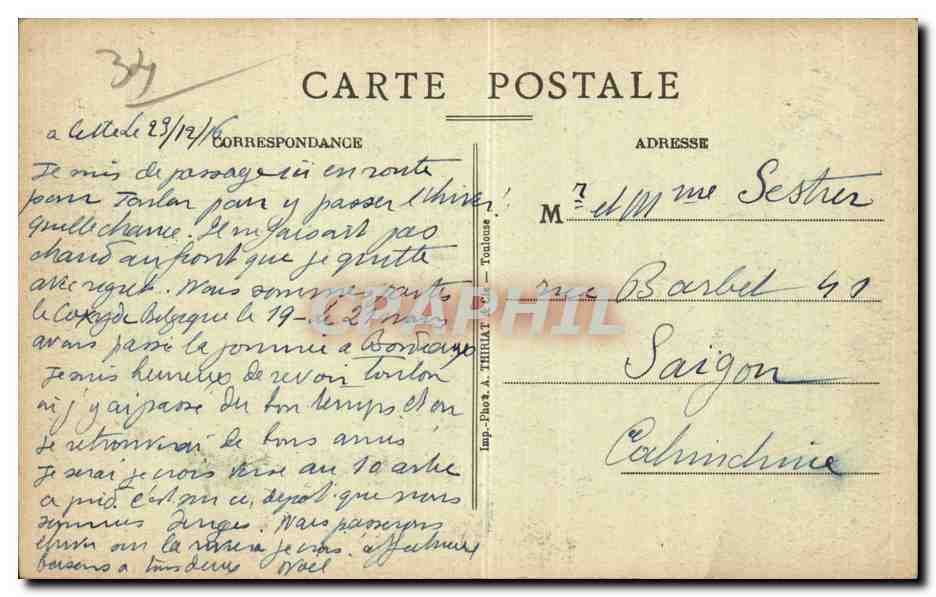 34
CARTE POSTALE
a Cette le 23/12/16
CORRESPONDANCE
ADRESSE
Je suis de passage ici en route
pour Toulon pour y passer l'hiver!
quelle chance. Il ne faisait pas
chaud au front que je quitte
avec regret. Nous sommes partis
le de Belgique le 19 - le 21 nous
avons passé la journée a Bordeaux
Je suis heureux de revoir Toulon
où j'y ai passé du bon temps et on
je retrouverai de bons amis
Je serai je crois versé au 10 artie
a pied. c'est sur ce dépot que nous
sommes dirigés. Nous passerons
l'hiver sur la riviera je crois. affectueux
baisers a tous deux Noël
Imp.-Phot. A. THIRIAT & Cie — Toulouse
Mr et Mme Sestrer
rue Barbet 41
Saigon
Cochinchine
CPAPHIL